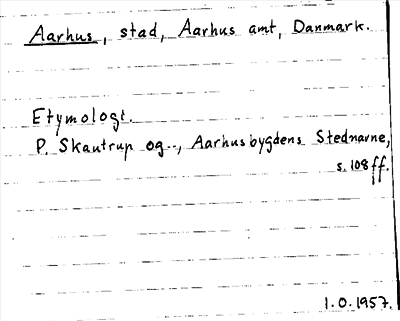 Aarhus, stad, Aarhus amt, Danmark.
Etymologi.
P. Skautrup og.., Aarhusbygdens Stednavne,
s. 108 ff.
1.0.1957.